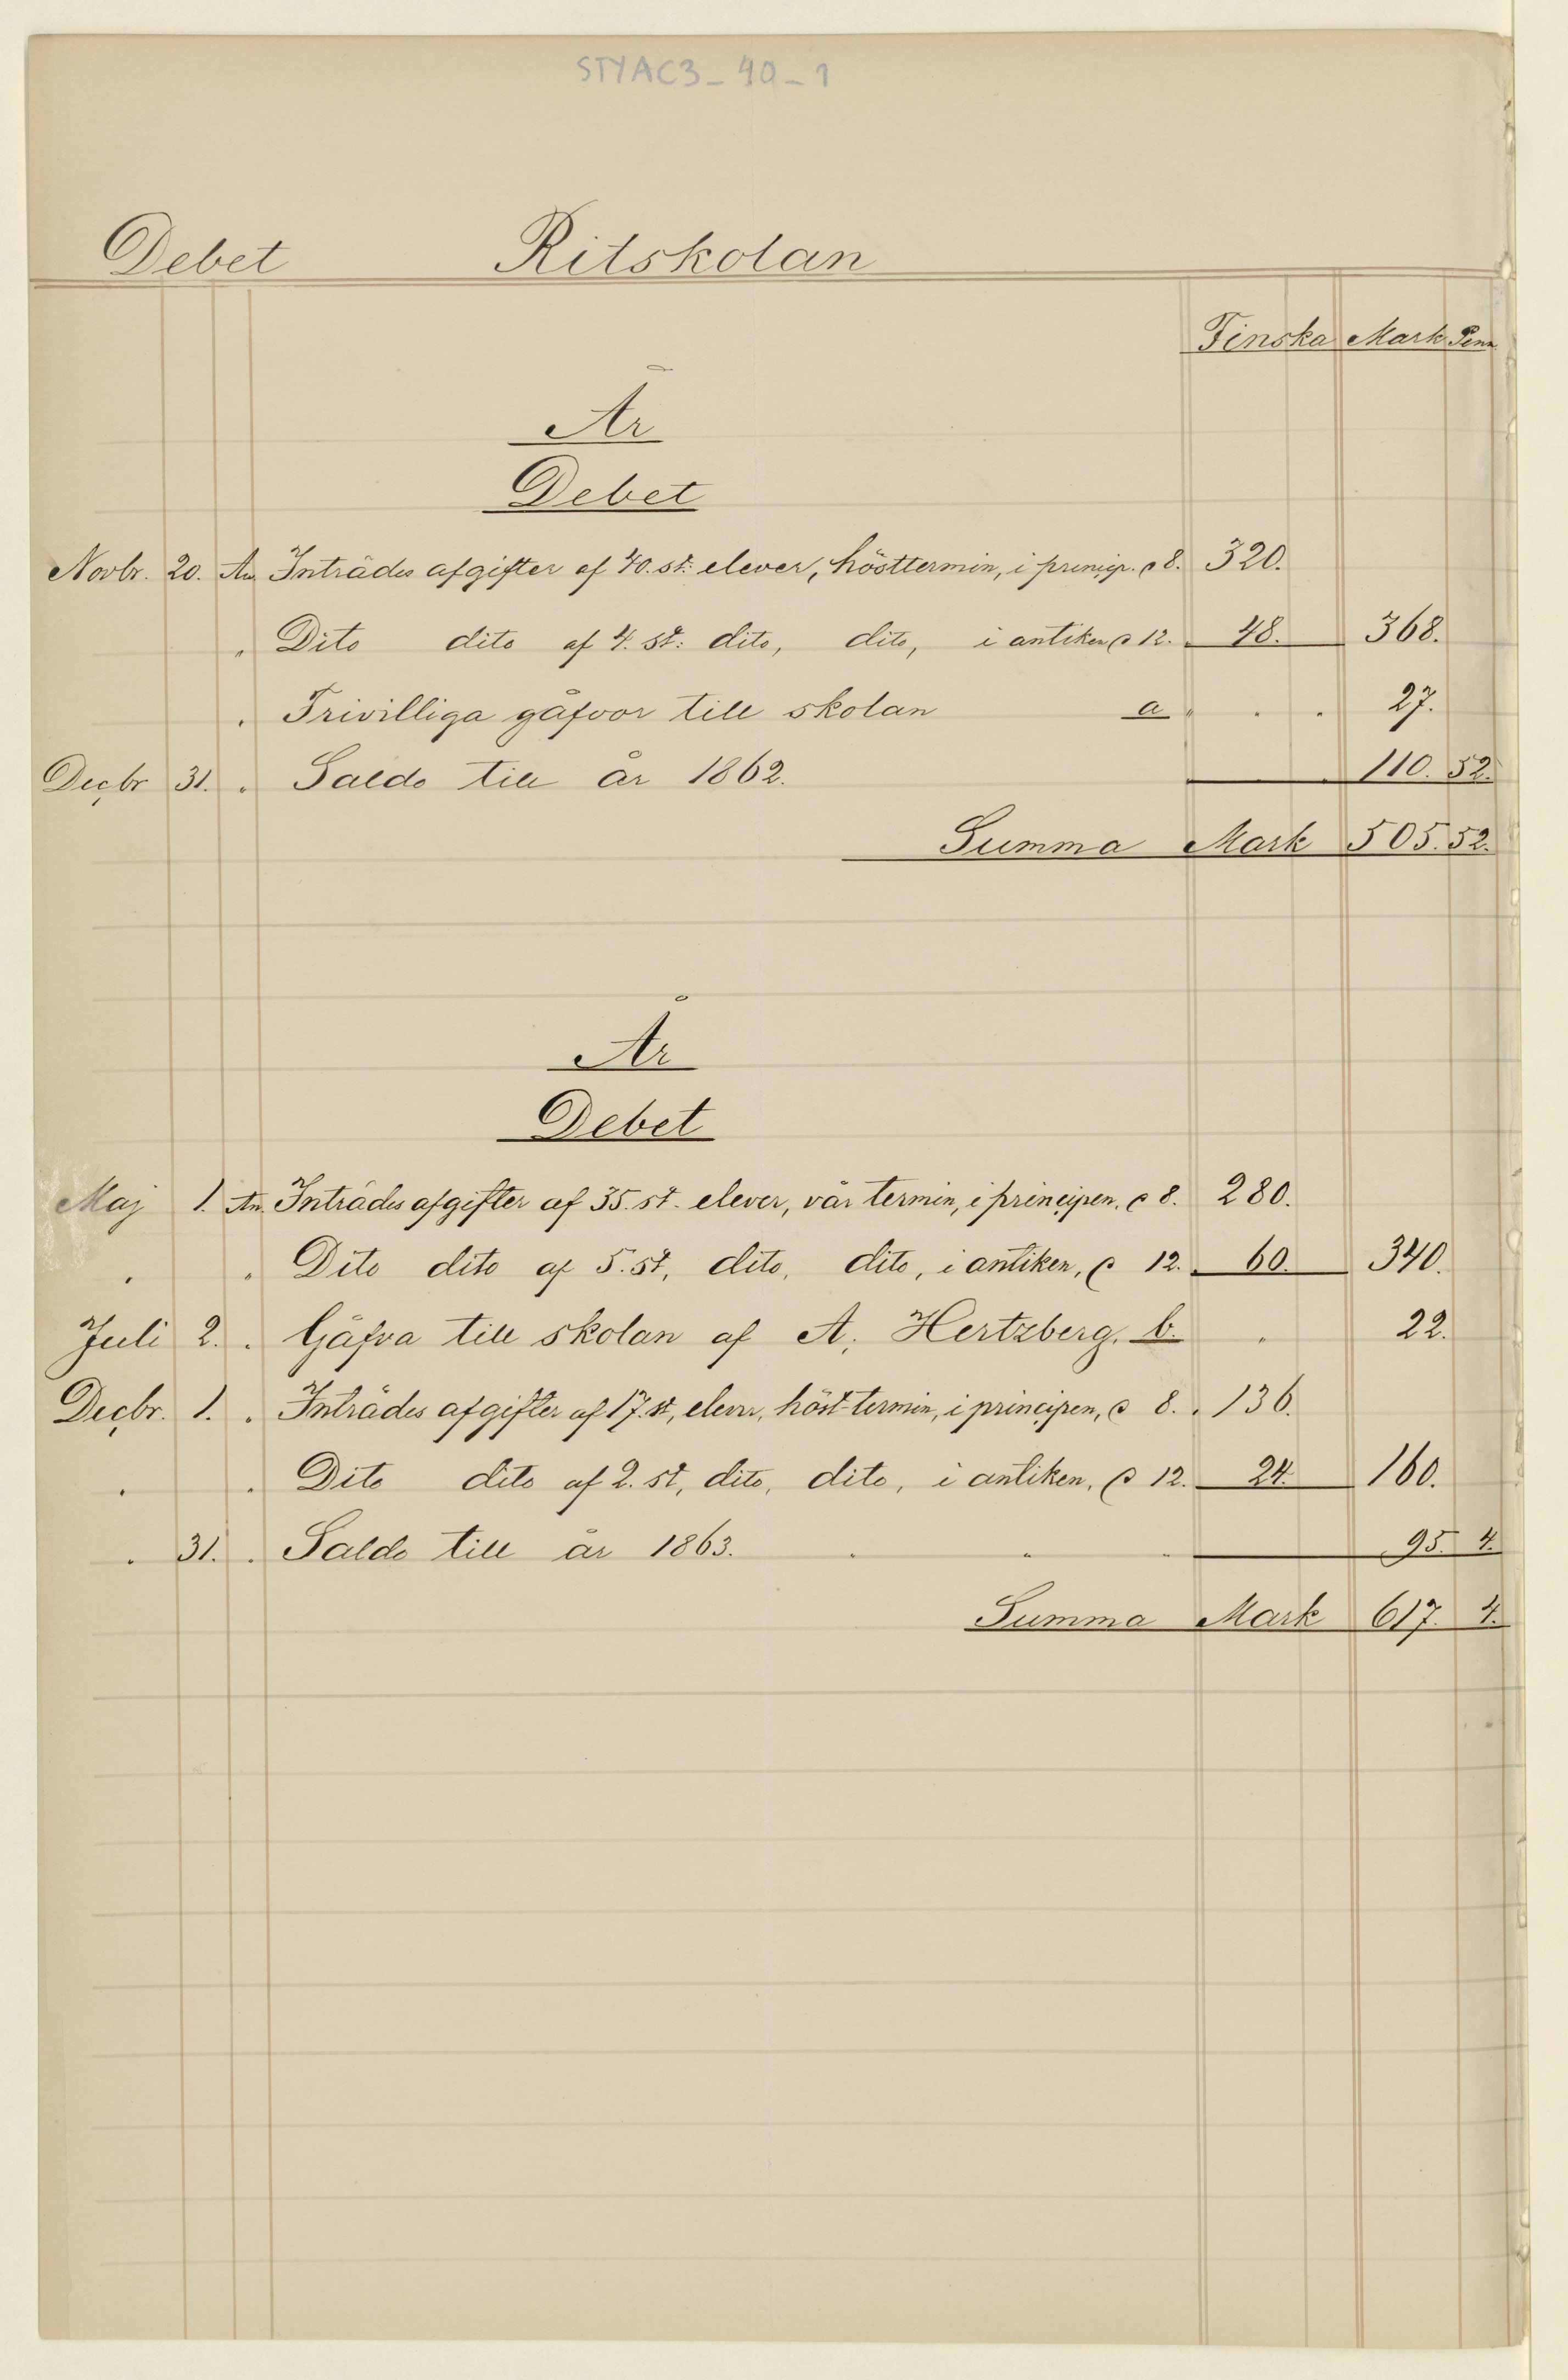 STYAC3_40_1
Debet Ritskolan
Finska Mark Penn.
År
Debet
Novbr. 20. An Inträdes afgifter af 40. st: elever, hösttermin, i princip. @ 8. 320.
" Dito dito af 4. st: dito, dito, i antiken @ 12. 48. 368.
" Frivilliga gåfvor till skolan a " " " 27.
Decbr 31. " Saldo till år 1862. 110. 52.
Summa Mark 505. 52.
År
Debet
Maj 1. An. Inträdes afgifter af 35. st. elever, vår termin, i principen. @ 8. 280.
" " Dito dito af 5. st, dito, dito, i antiken, @ 12. 60. 340.
Juli 2. " Gåfva till skolan af A. Hertzberg. b. " 22.
Decbr. 1. " Inträdes afgifter af 17. st, elever, höst-termin, i principen, @ 8. " 136.
" " Dito dito af 2. st, dito, dito, i antiken, @ 12. 24. 160.
" 31. " Saldo till år 1863. " " " 95. 4.
Summa Mark 617. 4.